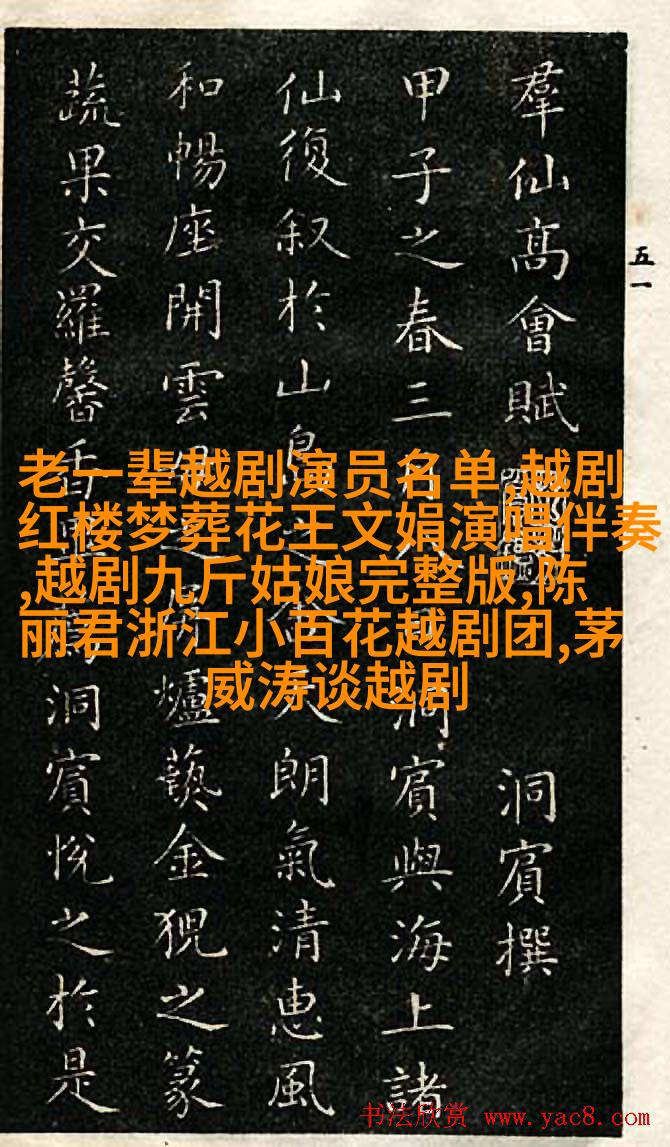 五一
羣仙高會賦
洞賓撰
甲子之春三 洞賓與海上諸
仙復叙於山 之 天朗氣清惠風
和暢座開雲 之 爐藝金猊之篆
蔬果交羅馨香 洞賓悅之於是
老一辈越剧演员名单,越剧
红楼梦葬花王文娟演唱伴奏
,越剧九斤姑娘完整版,陈
丽君浙江小百花越剧团,茅
威涛谈越剧
书法欣赏 www.yac8.com